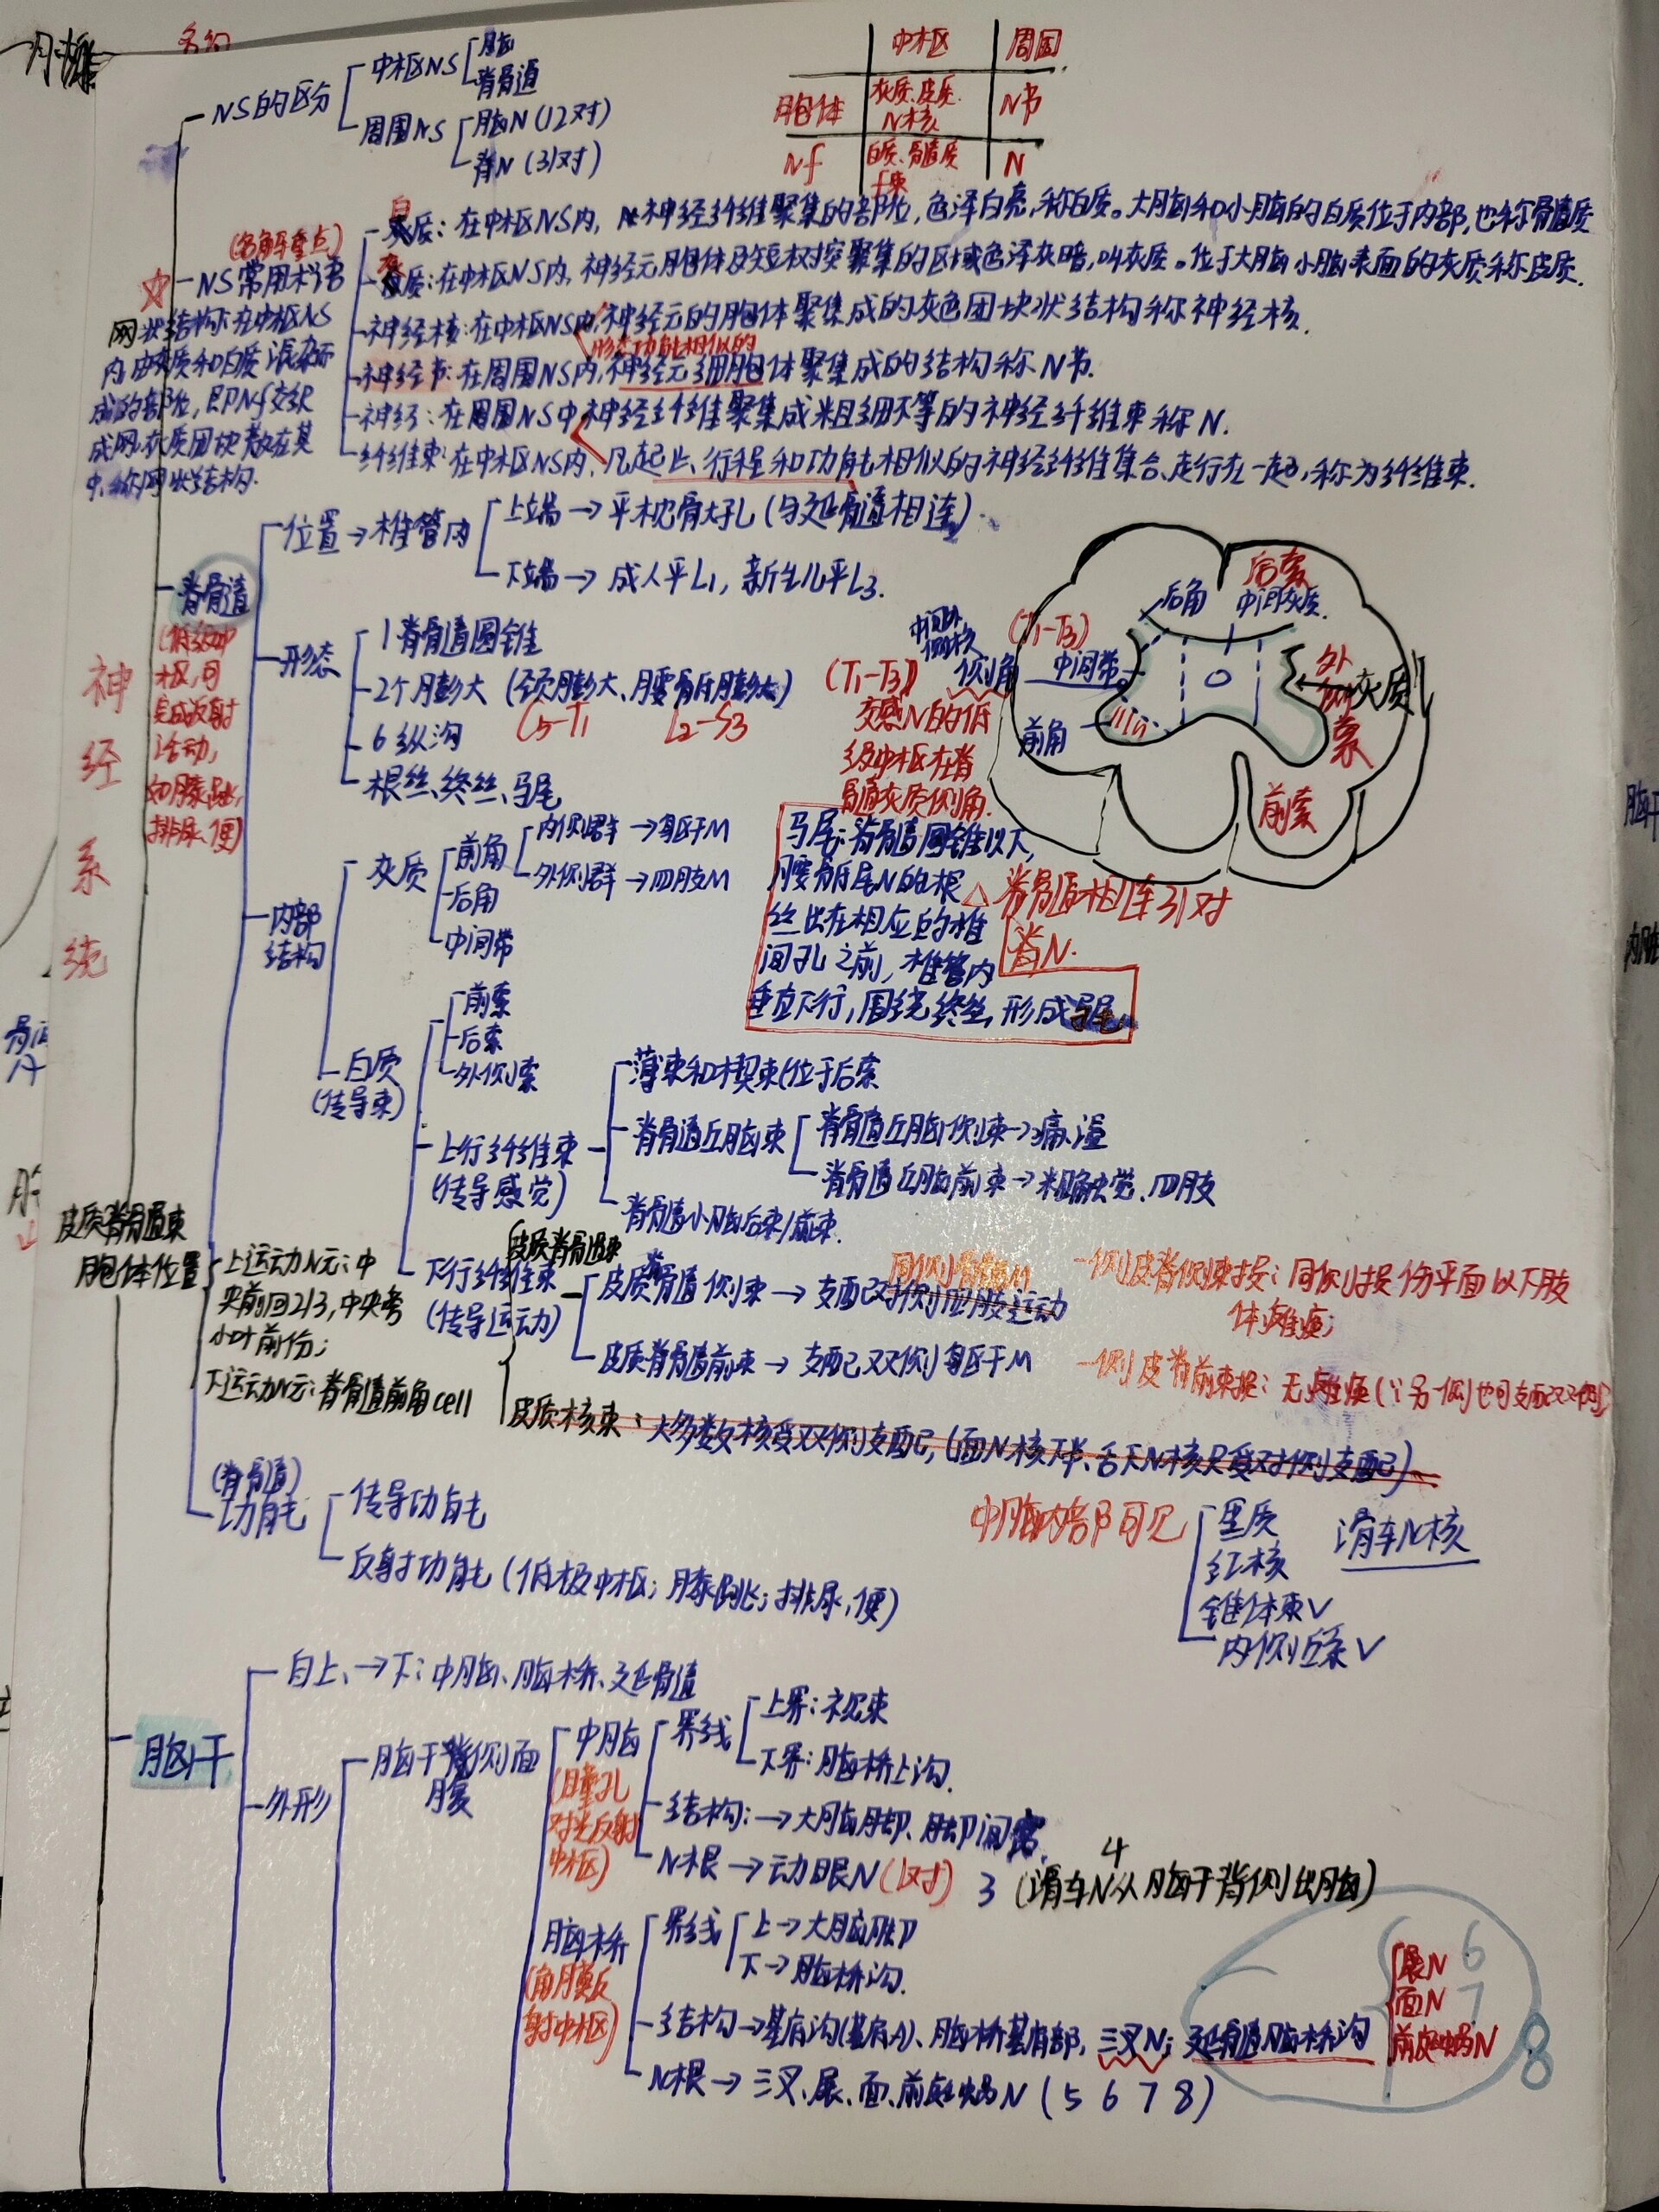 NS的区分
中枢NS
脑
脊髓
周围NS
脑N(12对)
脊N(31对)
中枢 周围
胞体 灰质、皮质、N核 N节
Nf 白质、髓质 f束 N
(名解重点)
NS常用术语
白质:在中枢NS内,神经纤维聚集的部位,色泽白亮,称白质。大脑和小脑的白质位于内部,也称髓质
灰质:在中枢NS内,神经元胞体及短树突聚集的区域色泽灰暗,叫灰质。位于大脑小脑表面的灰质称皮质.
神经核:在中枢NS内,神经元的胞体聚集成的灰色团块状结构称神经核.
形态功能相似的
神经节:在周围NS内,神经元细胞体聚集成的结构称N节.
神经:在周围NS中神经纤维聚集成粗细不等的神经纤维束称N.
纤维束:在中枢NS内,凡起止、行程和功能相似的神经纤维集合走行在一起,称为纤维束.
网状结构:在中枢NS
内由灰质和白质混杂而
成的部位,即Nf交织
成网,灰质团块散在其
中,称网状结构.
神经系统
脊髓
(低级中
枢,可
完成反射
活动,
如膝跳,
排尿、便)
位置→椎管内
上端→平枕骨大孔(与延髓相连).
下端→成人平L1,新生儿平L3.
形态
1脊髓圆锥
2个膨大(颈膨大、腰骶膨大)
C5-T1 L2-S3
6纵沟
根丝、终丝、马尾
后角
后索
中间灰质.
中间外侧核
(T1-T3)
侧角
中间带
(T1-T3)
交感N的低
级中枢在脊
髓灰质侧角.
前角
外侧索
灰质
前索
内部结构
灰质
前角
内侧群→躯干M
外侧群→四肢M
后角
中间带
马尾:脊髓圆锥以下,
腰骶尾N的根
丝出在相应的椎
间孔之前,椎管内
垂直下行,围绕终丝,形成马尾
△脊髓相连31对
脊N.
白质
(传导束)
前索
后索
外侧索
上行纤维束
(传导感觉)
薄束和楔束(位于后索
脊髓丘脑束
脊髓丘脑侧束→痛、温
脊髓丘脑前束→粗略触觉、四肢
脊髓小脑后束/前束.
皮质脊髓束
胞体位置
上运动N元:中
央前回2/3,中央旁
小叶前份;
下运动N元:脊髓前角cell
下行纤维束
(传导运动)
皮质脊髓束
皮质脊髓侧束→支配对侧四肢运动
一侧皮脊侧束损:同侧损伤平面以下肢
体瘫痪;
皮质脊髓前束→支配双侧躯干M
一侧皮脊前束损:无瘫痪(∵另一侧也可支配双侧)
皮质核束:大多数核受双侧支配,(面N核下半、舌下N核只受对侧支配)
(脊髓)
功能
传导功能
反射功能(低极中枢;膝跳;排尿、便)
中脑内部可见
黑质
红核
锥体束√
内侧丘系√
滑车N核
脑干
自上→下:中脑、脑桥、延髓
外形
脑干背侧面
腹
中脑
(瞳孔
对光反射
中枢)
界线
上界:视束
下界:脑桥上沟.
结构:→大脑脚、脚间窝
N根→动眼N(1对) 3 (滑车N从脑干背侧出脑)
4
脑桥
(角膜反
射中枢)
界线
上→大脑脚
下→脑桥沟.
结构→基底沟(基底A)、脑桥基底部,三叉N;延髓脑桥沟
展N 6
面N 7
前庭蜗N 8
N根→三叉、展、面、前庭蜗N(5 6 7 8)